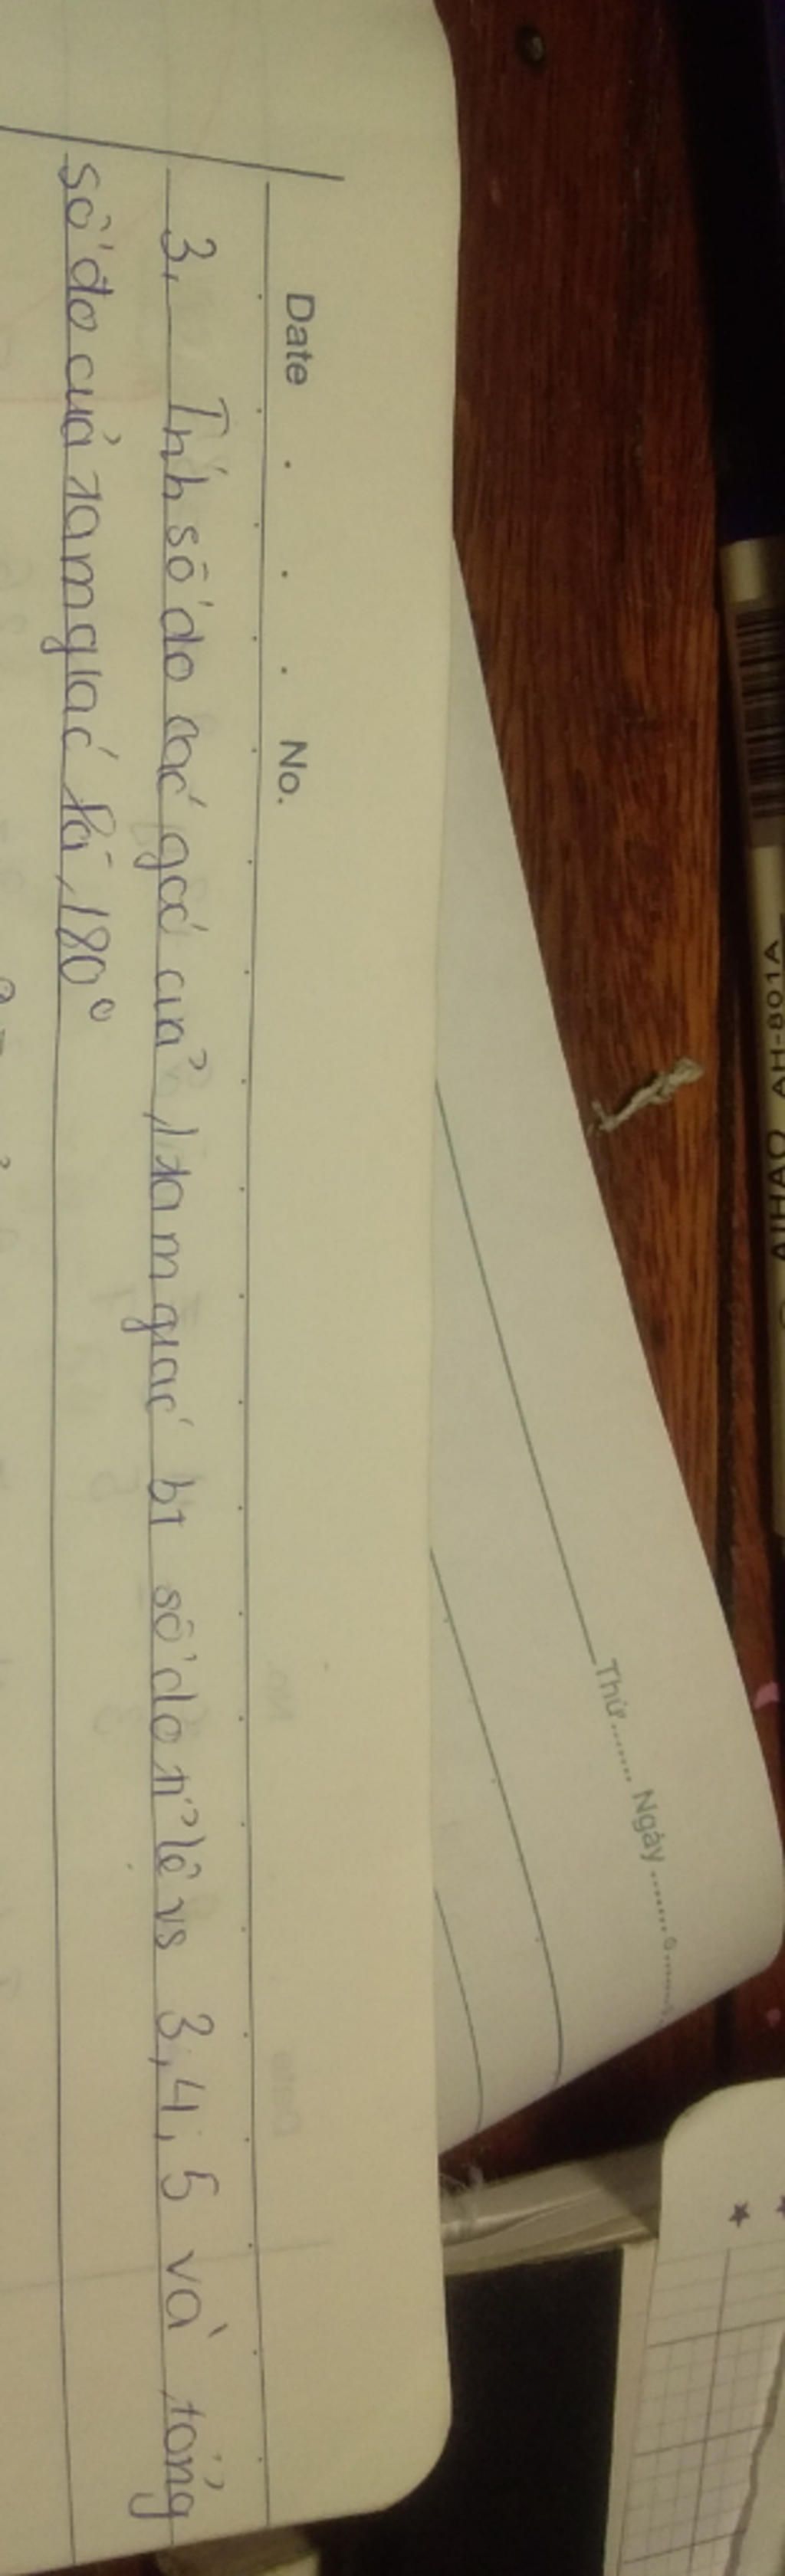 Date . . . No.
3, Tính số đo các góc của 1 tam giác bt số đo tỉ lệ vs 3, 4, 5 và tổng
số đo của tam giác là 180°
Thứ ....... Ngày .......
AIHAO AH-801A